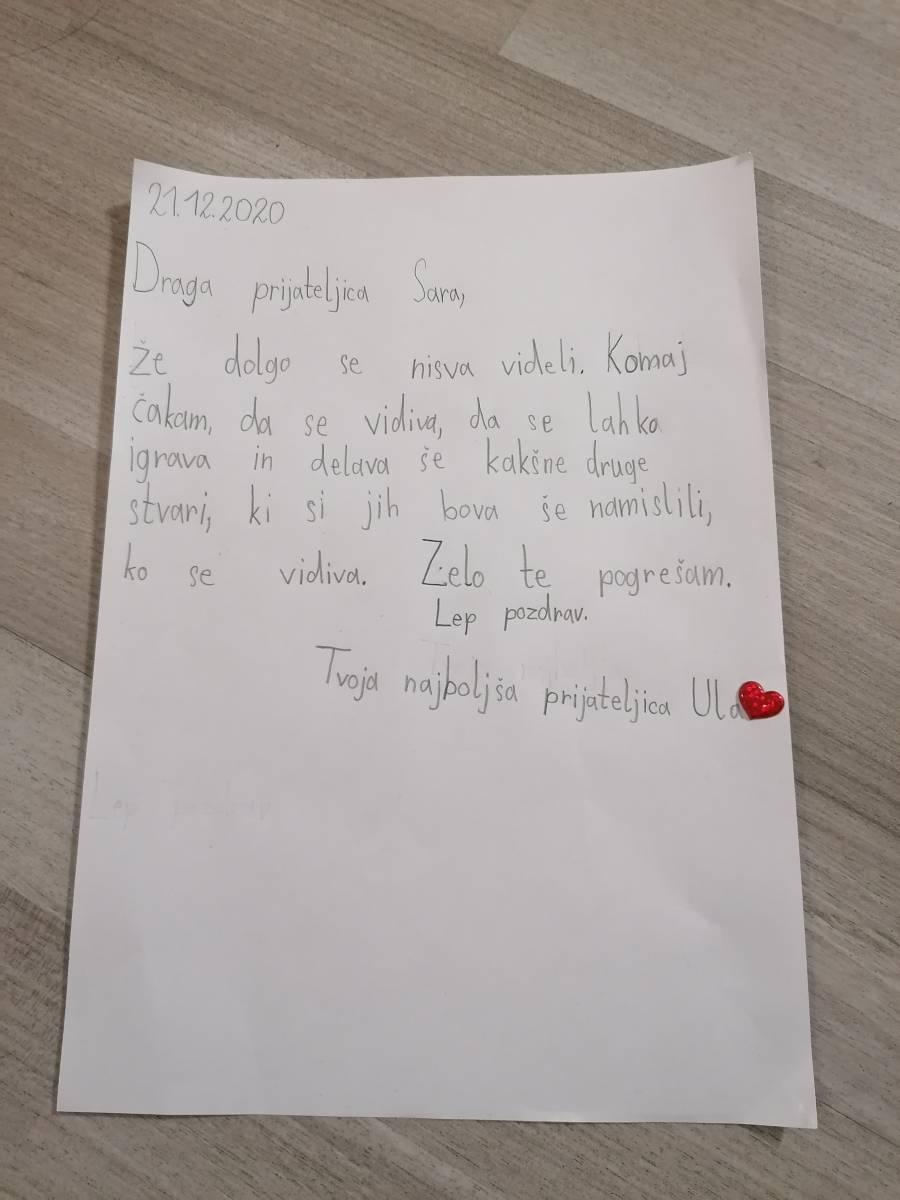 21.12.2020
Draga prijateljica Sara,
že dolgo se nisva videli. Komaj
čakam, da se vidiva, da se lahko
igrava in delava še kakšne druge
stvari, ki si jih bova še namislili,
ko se vidiva. Zelo te pogrešam.
Lep pozdrav.
Tvoja najboljša prijateljica Ula
Lep pozdrav